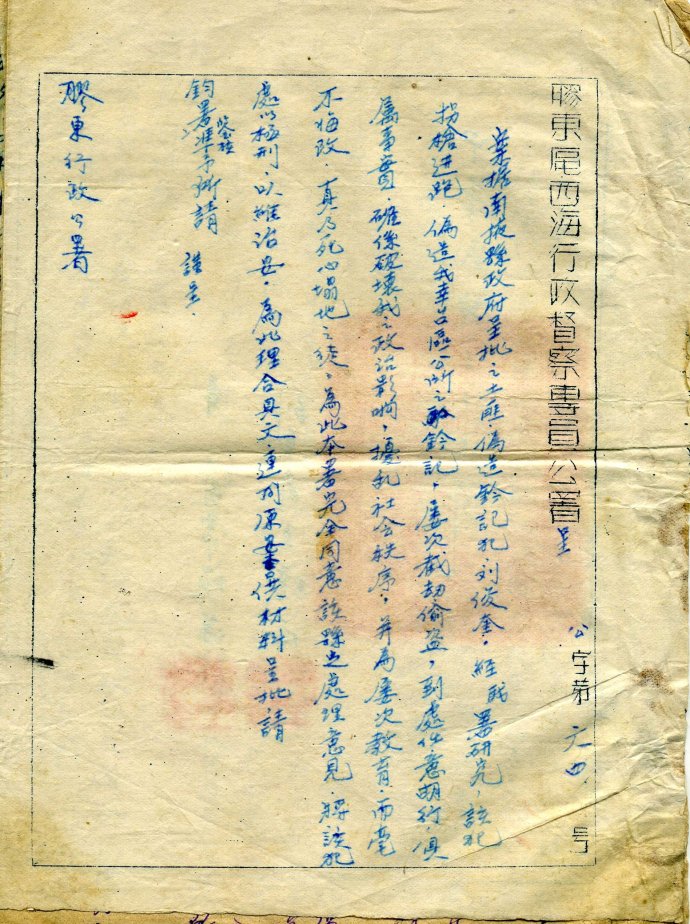 膠東區西海行政督察專員公署 呈 公字第六四號
案據南掖縣政府呈批之土匪·偽造鈐記犯刘俊奎·經我署研究,該犯
拐槍逃跑·偽造我幸台區公所之鈐記,屡次截劫偷盜,到處任意胡行,俱
屬事實·確係破壞我之政治影响,擾乱社会秩序,并為屡次教育·而毫
不悔改·真乃死心塌地之徒,為此本署完全同意該縣之處理意見·將該犯
處以極刑·以維治安·為此理合具文·連同原呈供材料呈批請
鈞署鑒核准予所請 謹呈·
膠東行政公署